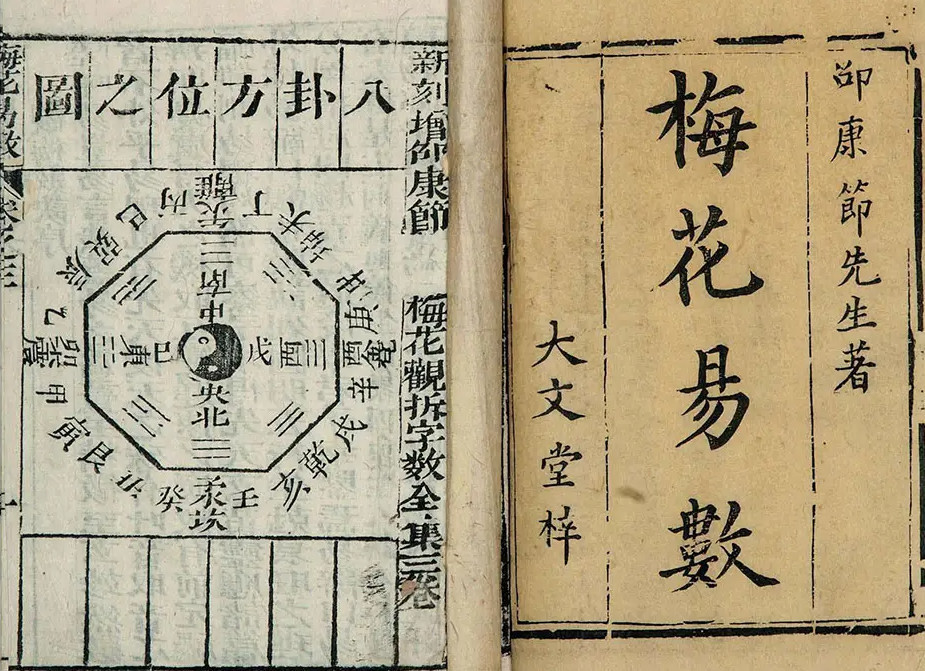 邵康節先生著
梅花易數
大文堂梓
新刻增邵康節
梅花觀拆字數全集三卷
八卦方位之圖
丙
午離
丁
未坤申
庚
酉兌
辛
戌乾亥
壬
子坎
癸
丑艮寅
甲
卯震
乙
辰巽巳
南
中
東
己
戊
西
央
北
梅花易數
卷之三